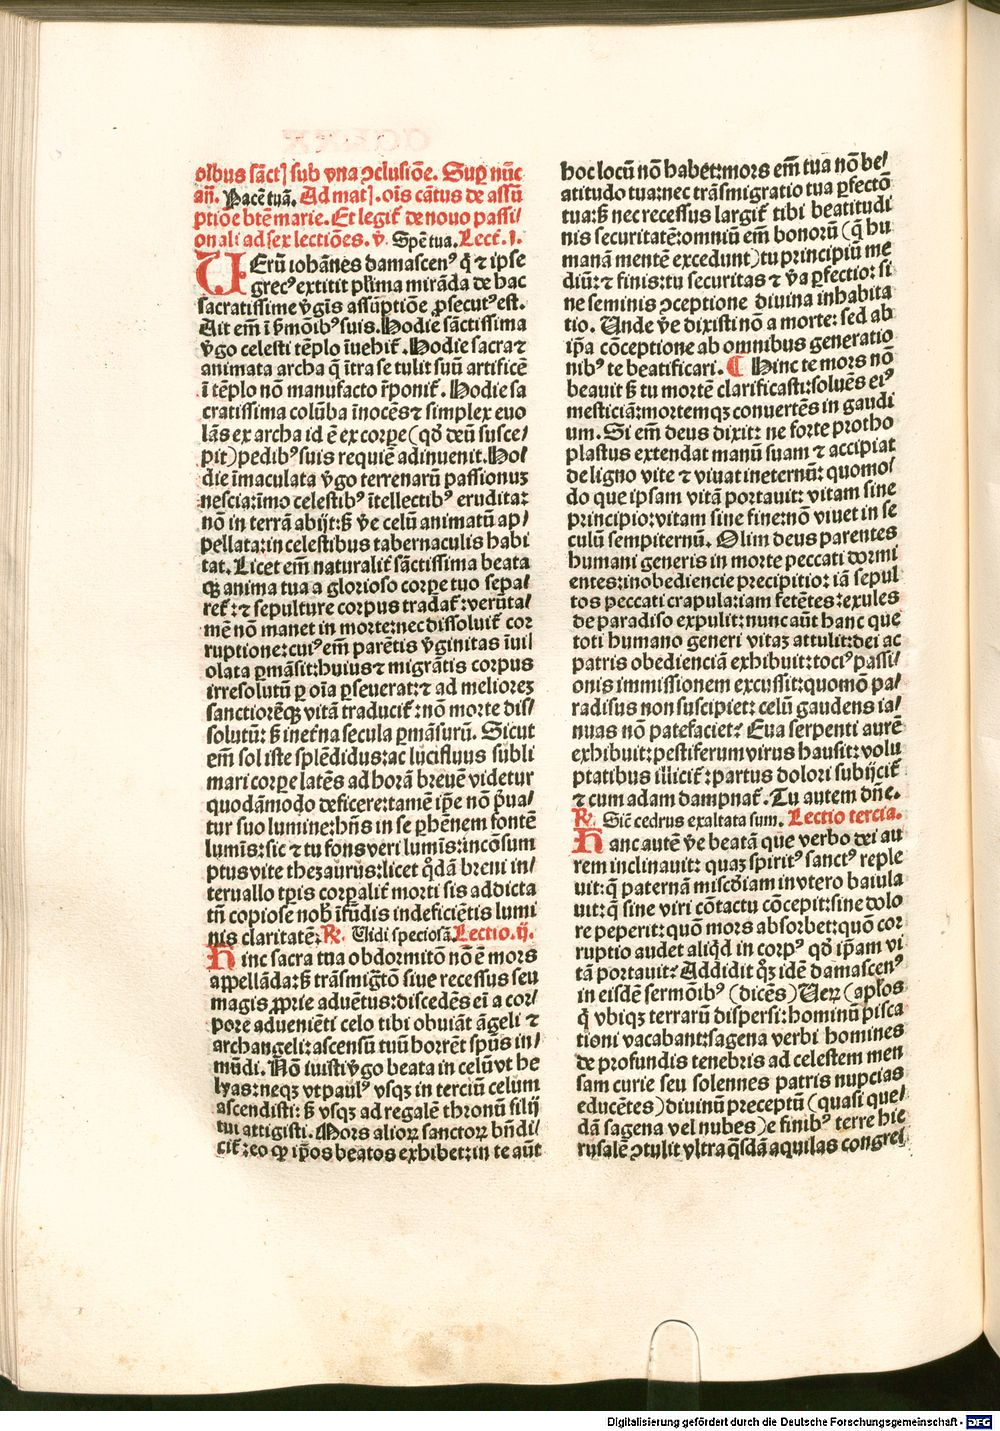 oībus sāctꝭ sub vna ↄclusiōe. Suꝑ nūc
añ. Pacē tuā. Ad matꝭ. oīs cātus de assū
ptiōe btē marie. Et legit᷑ de nouo passi⸗
onali ad sex lectiōes. v̄. Spē tua. Lect. I.
UErū iohānes damascenꝰ q̄ ⁊ ipse
grecꝰ extitit pl̄ima mirāda de hac
sacratissime v̄gīs assūptiōe ꝓsecutꝰ est.
Ait em̄ ī ẜmōibꝰ suis. Hodie sāctissima
v̄go celesti tēplo īuehit᷑. Hodie sacra ⁊
animata archa q̄ ītra se tulit suū artificē
ī tēplo nō manufacto r̄ponit᷑. Hodie sa
cratissima colūba īnocēs ⁊ simplex euo
lās ex archa id ē ex corꝑe (qd̄ deū susce⸗
pit) pedibꝰ suis requiē adinuenit. Ho⸗
die īmaculata v̄go terrenarū passionuꝫ
nescia: īmo celestibꝰ ītellectibꝰ erudita:
nō in terrā abijt: ẜ v̄e celū animatū ap⸗
pellata: in celestibus tabernaculis habi
tat. Licet em̄ naturalit᷑ sāctissima beata
qꝫ anima tua a glorioso corꝑe tuo seꝑa⸗
ret᷑: ⁊ sepulture corpus tradat᷑: verūta⸗
mē nō manet in morte: nec dissoluit᷑ cor
ruptione: cuiꝰ em̄ parētis v̄ginitas īuil
olata ꝑmāsit: huius ⁊ migrātis corpus
irresolutū ꝑ oīa ꝑseuerat: ⁊ ad melioreꝫ
sanctiorēqꝫ vitā traducit᷑: nō morte dis⸗
solutū: ẜ inet̄na secula ꝑmāsurū. Sicut
em̄ sol iste splēdidus: ac lucifluus subli
mari corꝑe latēs ad horā breuē videtur
quodāmodo deficere: tamē ip̄e nō p̄ua⸗
tur suo lumine: hn̄s in se ꝑhēnem fontē
lumīs: sic ⁊ tu fons veri lumīs: incōsum
ptus vite thezaurus: licet q̄dā breui in⸗
teruallo tp̄is corꝑalit᷑ morti sis addicta
tn̄ copiose nob̄ īfūdis indeficiētis lumi
nis claritatē. ℟. Uidi speciosā. Lectio. ij.
Hinc sacra tua obdormitō nō ē mors
appellāda: ẜ trāsmigr̄tō siue recessus seu
magis ꝓprie aduētus: discedēs ei̅ a cor⸗
pore adueniēti celo tibi obuiāt āgeli ⁊
archangeli: ascensū tuū horrēt spūs in⸗
mūdi. Nō iuisti v̄go beata in celū vt he
lyas: neqꝫ vt paulꝰ vsqꝫ in terciū celum
ascendisti: ẜ vsqꝫ ad regalē thronū filij
tui attigisti. Mors alioꝝ sanctoꝝ bn̄di⸗
cit᷑: eo qꝫ ip̄os beatos exhibet: in te aūt
hoc locū nō habet: mors em̄ tua nō be⸗
atitudo tua: nec trāsmigratio tua ꝑfectō
tua: ẜ nec recessus largit᷑ tibi beatitudi
nis securitatē: omniū em̄ bonorū (q̄ hu
manā mentē excedunt) tu principiū me
diū: ⁊ finis: tu securitas ⁊ v̄a ꝑfectio: si
ne seminis ↄceptione diuina inhabita
tio. Unde v̄e dixisti nō a morte: sed ab
ip̄a cōceptione ab omnibus generatio
nibꝰ te beatificari. ¶ Hinc te mors nō
beauit ẜ tu mortē clarificasti: soluēs eiꝰ
mesticiā: mortemqꝫ conuertēs in gaudi
um. Si em̄ deus dixit: ne forte protho
plastus extendat manū suam ⁊ accipiat
de ligno vite ⁊ viuat ineternū: quomo⸗
do que ipsam vitā portauit: vitam sine
principio: vitam sine fine: nō viuet in se
culū sempiternū. Olim deus parentes
humani generis in morte peccati dormi
entes: inobediencie precipitio: iā sepul
tos peccati crapula: iam fetētes: exules
de paradiso expulit: nunc aūt hanc que
toti humano generi vitaꝫ attulit: dei ac
patris obedienciā exhibuit: tociꝰ passi⸗
onis immissionem excussit: quomō pa⸗
radisus non suscipiet: celū gaudens ia⸗
nuas nō patefaciet? Eua serpenti aurē
exhibuit: pestiferum virus hausit: volu
ptatibus illicit᷑: partus dolori subijcit᷑
⁊ cum adam dampnat᷑. Tu autem dn̄e.
℟. Sic̄ cedrus exaltata sum. Lectio tercia.
Hanc autē v̄e beatā que verbo dei au
rem inclinauit: quaꝫ spiritꝰ sanctꝰ reple
uit: q̄ paternā misc̄diam in vtero baiula
uit: q̄ sine viri cōtactu cōcepit: sine dolo
re peperit: quō mors absorbet: quō cor
ruptio audet aliqd̄ in corpꝰ qd̄ ip̄am vi
tā portauit? Addidit qꝫ idē damascenꝰ
in eisdē sermōibꝰ (dicēs) Ueꝝ (apl̄os
q̄ vbiqꝫ terrarū dispersi: hominū pisca
tioni vacabant: sagena verbi homines
de profundis tenebris ad celestem men
sam curie seu solennes patris nupcias
educētes) diuinū preceptū (quasi que⸗
dā sagena vel nubes) e finibꝰ terre hie
rusalē ↄtulit vltra q̄sdā aquilas congre⸗
Digitalisierung gefördert durch die Deutsche Forschungsgemeinschaft - DFG